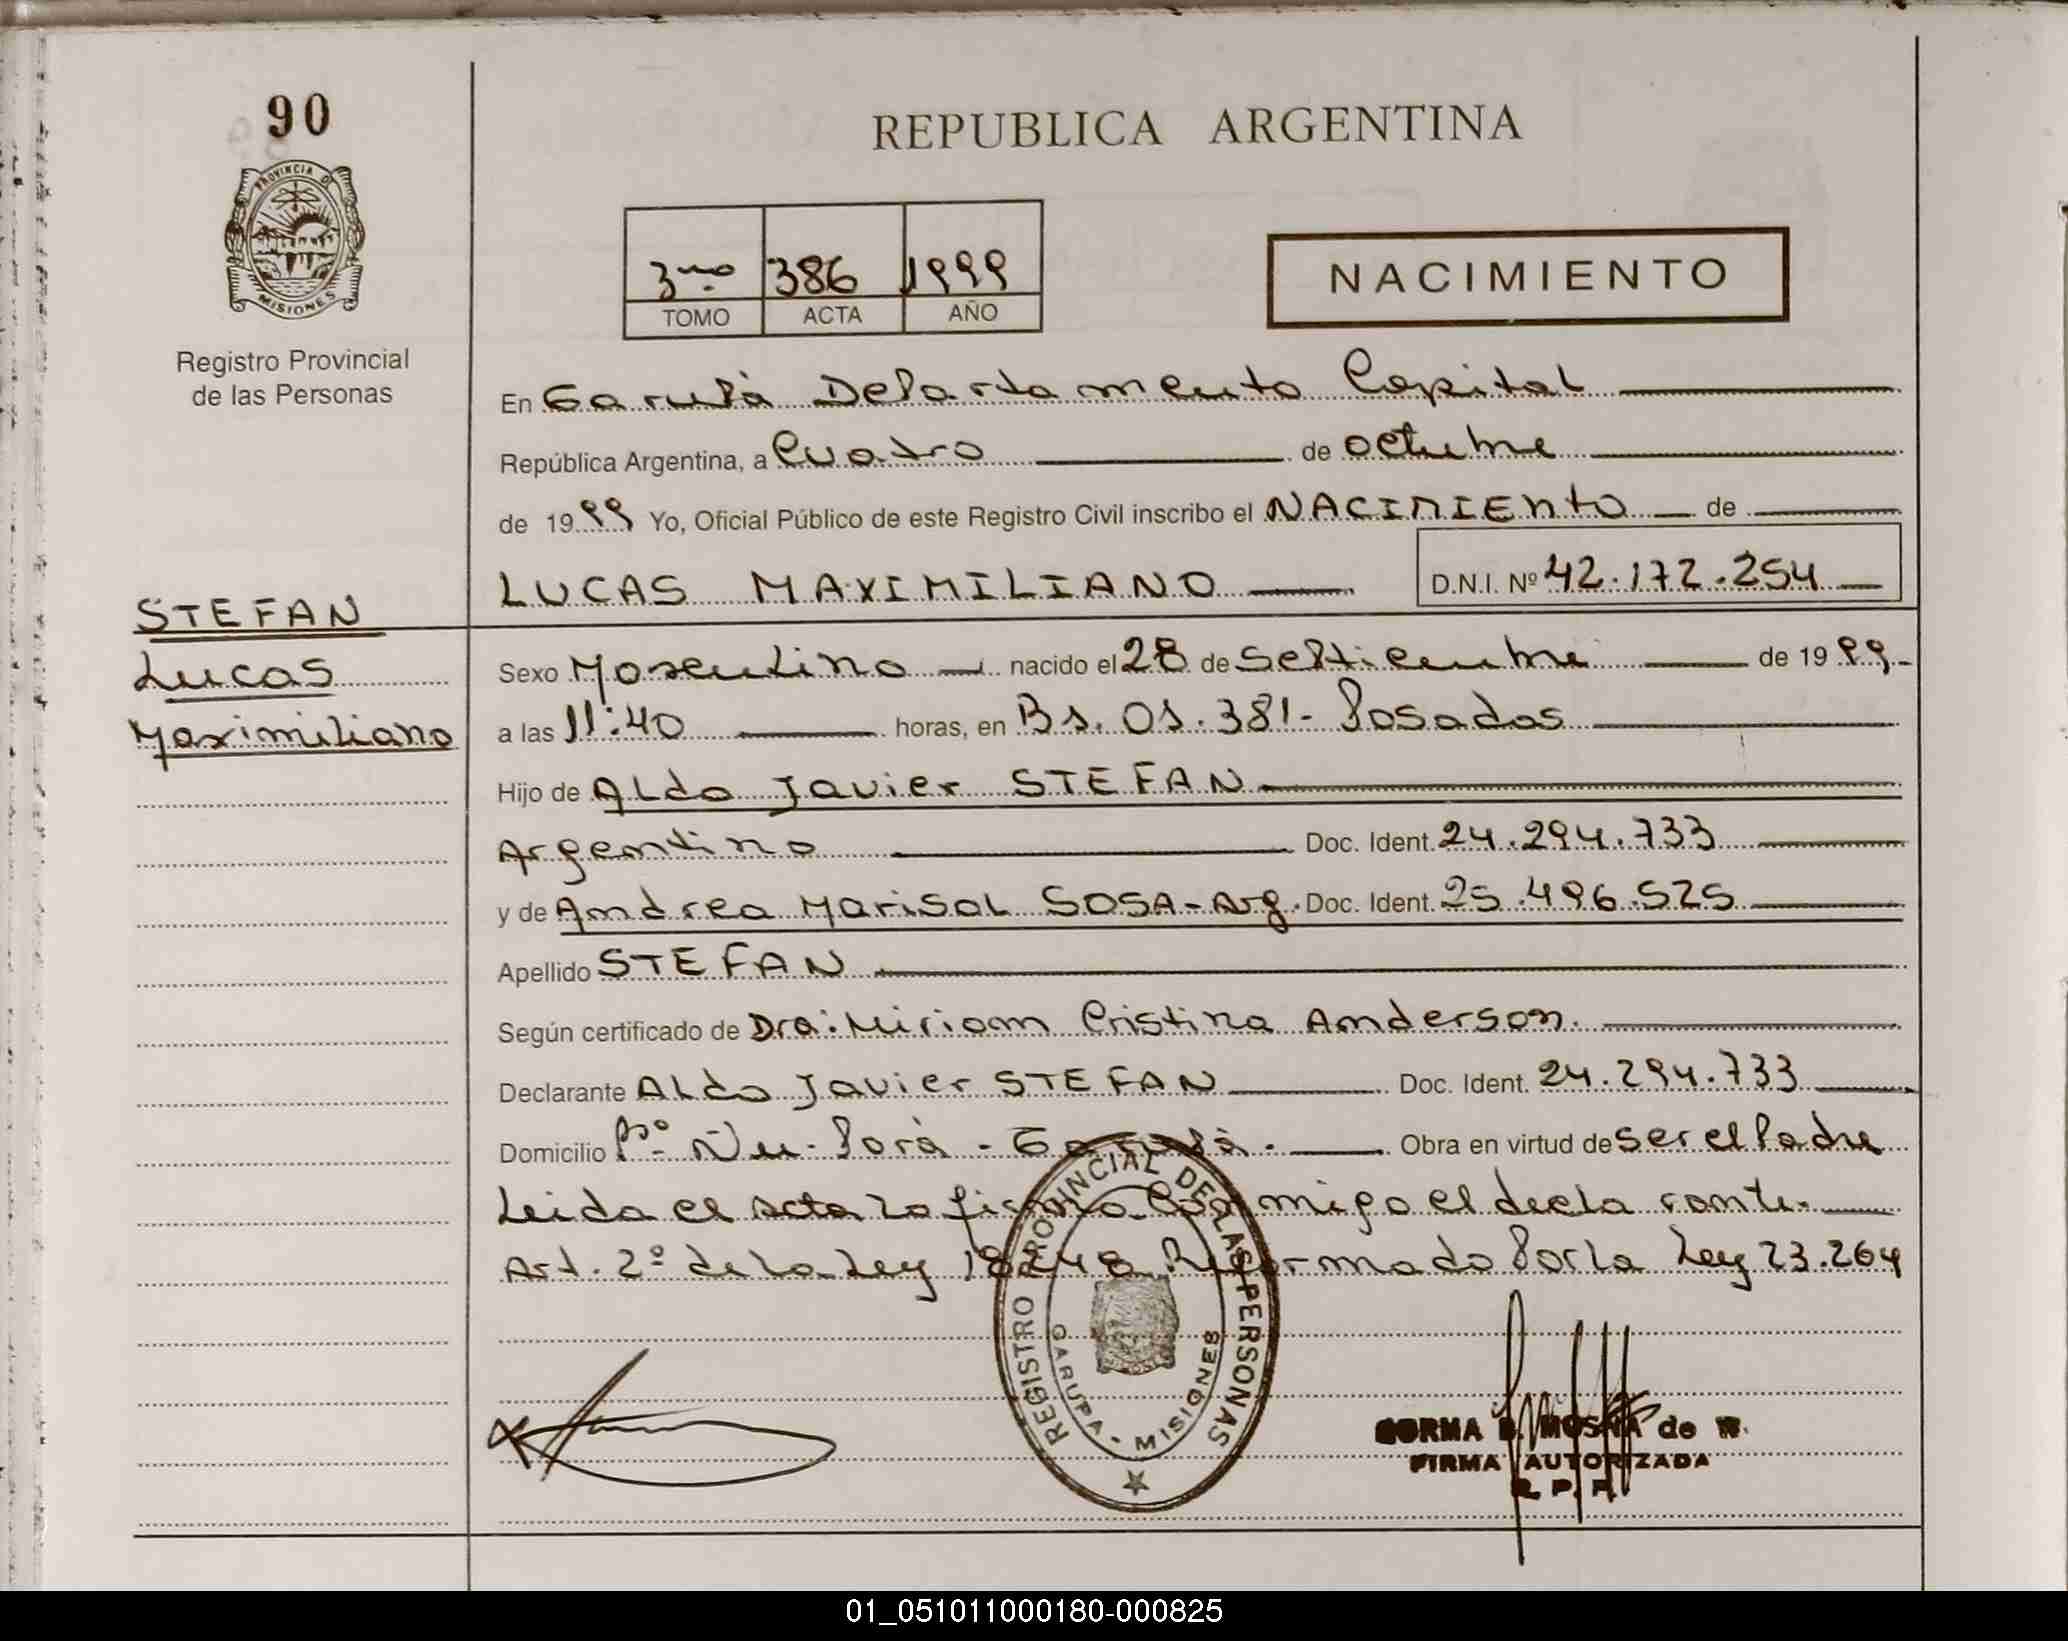 90
PROVINCIA DE
MISIONES
Registro Provincial
de las Personas
REPUBLICA ARGENTINA
3ro 386 1999
TOMO ACTA AÑO
NACIMIENTO
En Garupá Departamento Capital
República Argentina, a Cuatro de octubre
de 1999 Yo, Oficial Público de este Registro Civil inscribo el NACIMIENTO de
LUCAS MAXIMILIANO D.N.I. Nº 42.172.254
STEFAN
Lucas
Maximiliano
Sexo Masculino nacido el 28 de Septiembre de 1999
a las 11:40 horas, en Bs. Os. 381- Posadas
Hijo de Aldo Javier STEFAN
Argentino Doc. Ident. 24.294.733
y de Andrea Marisol SOSA-Arg. Doc. Ident. 25.496.525
Apellido STEFAN
Según certificado de Dra: Miriam Cristina Anderson.
Declarante Aldo Javier STEFAN Doc. Ident. 24.294.733
Domicilio Bº Ñu-Porá - Garupá. Obra en virtud de ser el Padre
Leida el acta la firma conmigo el declarante.
Art. 2º de la Ley 18248 Reformado Por la Ley 23.264
REGISTRO PROVINCIAL DE LAS PERSONAS
GARUPA - MISIONES
MOSNA de W.
FIRMA AUTORIZADA
R. P. P.
01_051011000180-000825